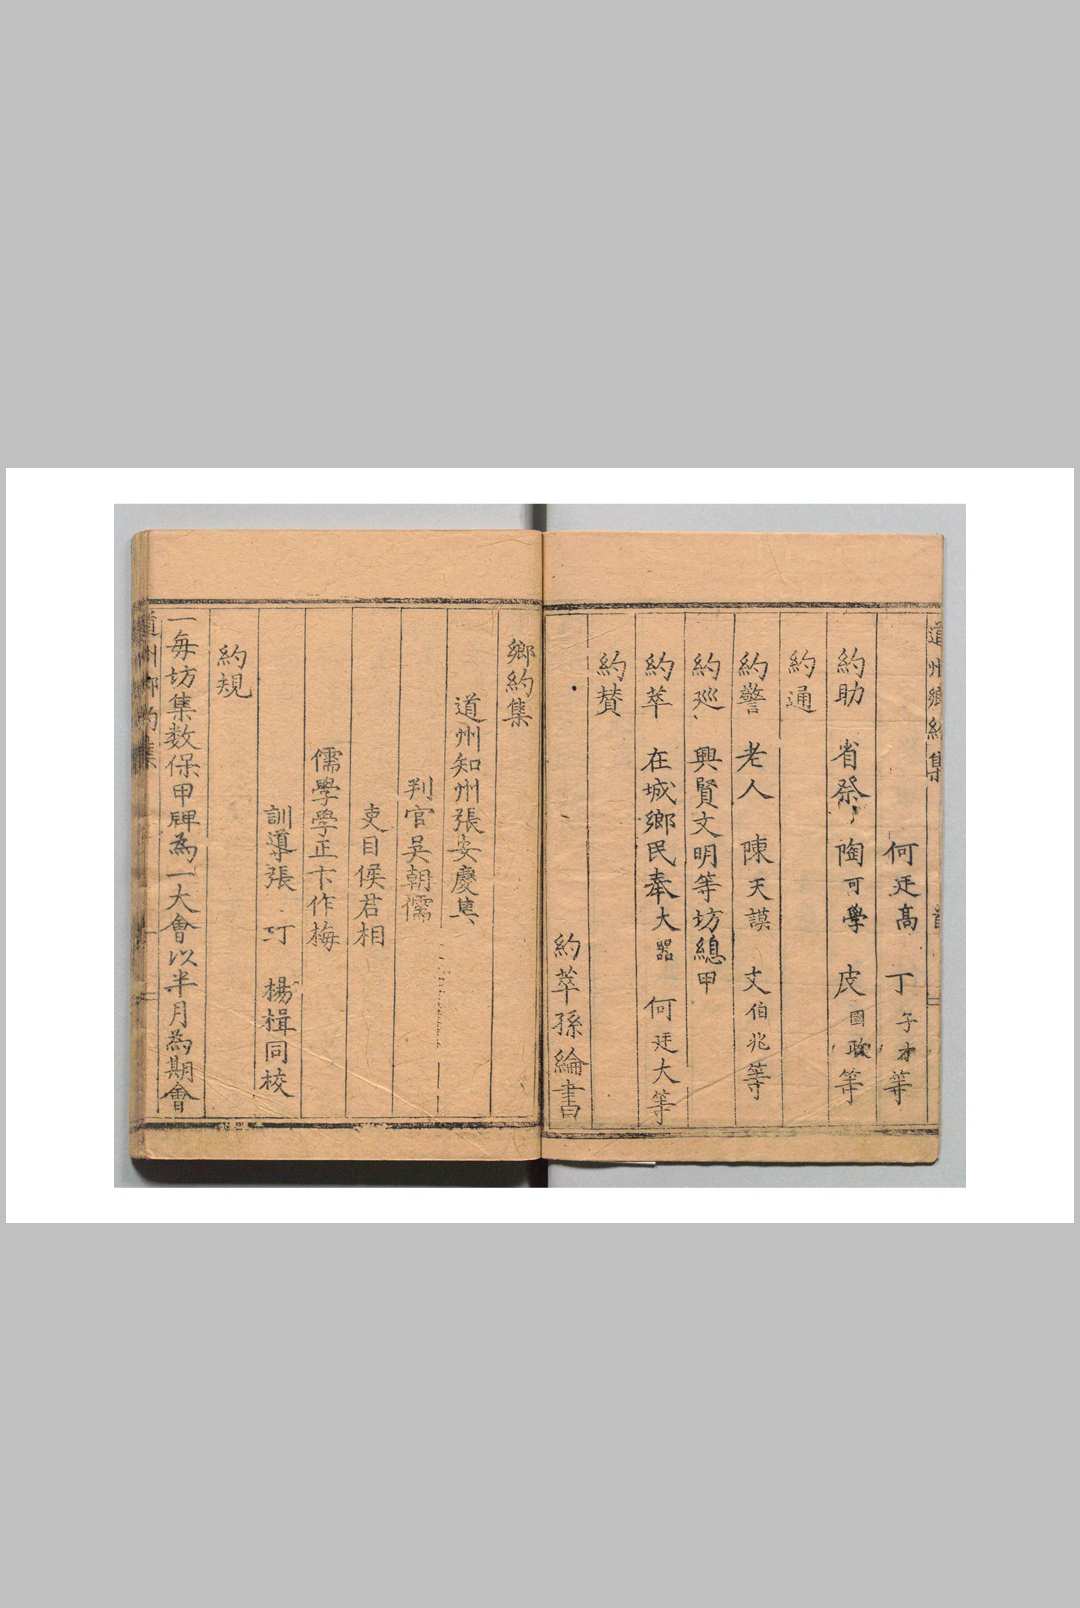 道州鄉約集
何廷高 丁子才等
約助 省祭 陶可學 皮國政等
約通
約警 老人 陳天謨 文伯兆等
約巡 興賢文明等坊總甲
約萃 在城鄉民奉大器 何廷大等
約贊
約萃孫綸書
鄉約集
道州知州張安慶集
判官吳朝儒
吏目侯君相
儒學學正卞作梅
訓導張汀 楊楫同校
約規
一每坊集數保甲牌為一大會以半月為期會
道州鄉約集